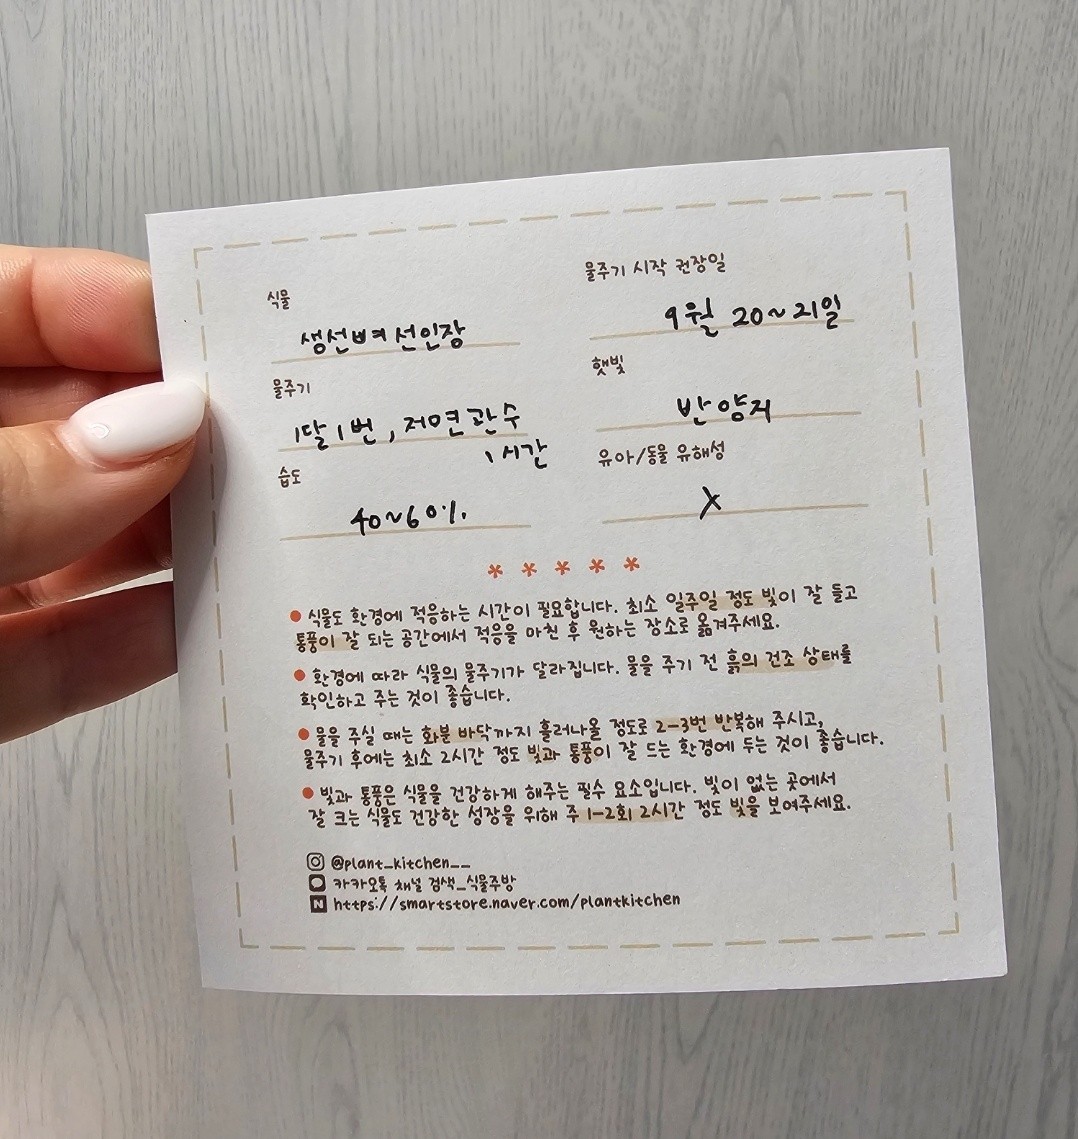 식물
생선뼈선인장
물주기 시작 권장일
9월 20~21일
물주기
1달 1번, 저면관수
1시간
햇빛
반양지
습도
40~60%
유아/동물 유해성
X
* * * * *
● 식물도 환경에 적응하는 시간이 필요합니다. 최소 일주일 정도 빛이 잘 들고
통풍이 잘 되는 공간에서 적응을 마친 후 원하는 장소로 옮겨주세요.
● 환경에 따라 식물의 물주기가 달라집니다. 물을 주기 전 흙의 건조 상태를
확인하고 주는 것이 좋습니다.
● 물을 주실 때는 화분 바닥까지 흘러나올 정도로 2-3번 반복해 주시고,
물주기 후에는 최소 2시간 정도 빛과 통풍이 잘 드는 환경에 두는 것이 좋습니다.
● 빛과 통풍은 식물을 건강하게 해주는 필수 요소입니다. 빛이 없는 곳에서
잘 크는 식물도 건강한 성장을 위해 주 1-2회 2시간 정도 빛을 보여주세요.
@plant_kitchen__
카카오톡 채널 검색_식물주방
N https://smartstore.naver.com/plantkitchen